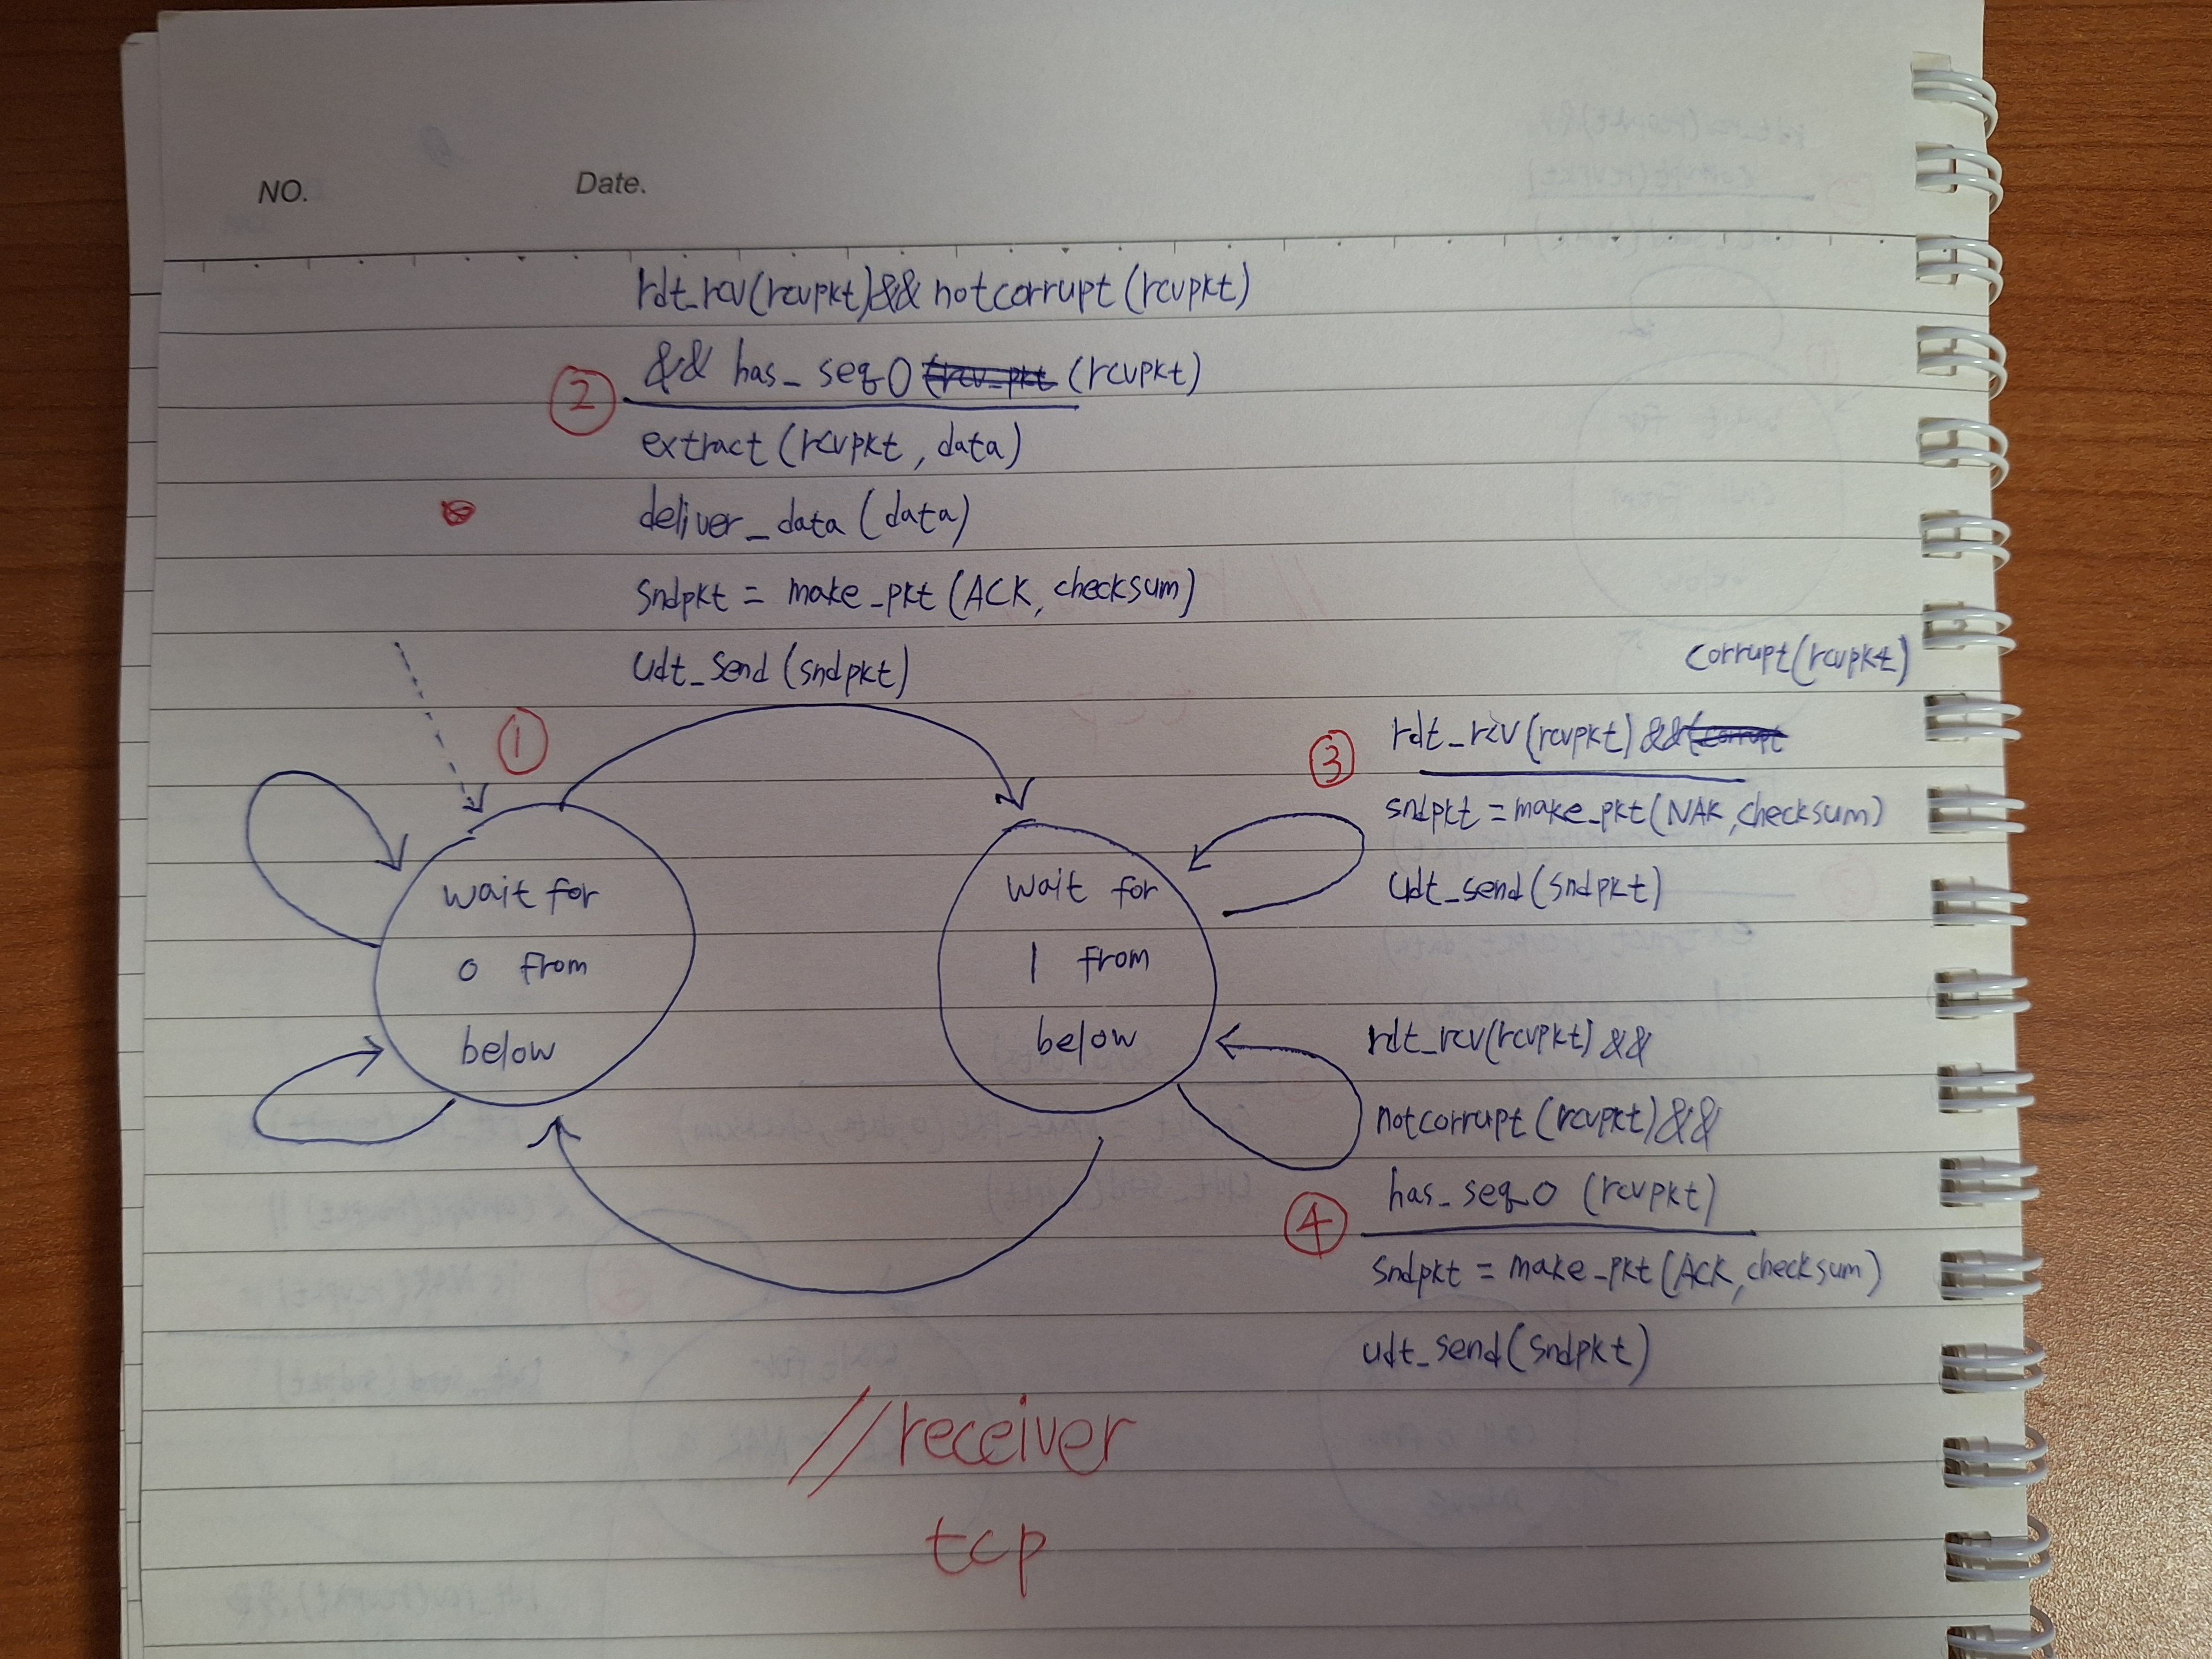 NO.
Date.
rdt_rcv(rcvpkt)&& notcorrupt(rcvpkt)
&& has_seq0 (rcv_pkt (rcvpkt)
②
extract(rcvpkt, data)
deliver_data(data)
sndpkt = make_pkt(ACK, checksum)
udt_send(sndpkt)
①
corrupt(rcvpkt)
rdt_rcv(rcvpkt) &&(corrupt
③
sndpkt = make_pkt(NAK, checksum)
udt_send(sndpkt)
wait for
0 from
below
wait for
1 from
below
rdt_rcv(rcvpkt) &&
notcorrupt(rcvpkt)&&
has_seq0 (rcvpkt)
④
sndpkt = make_pkt(ACK, checksum)
udt_send(sndpkt)
//receiver
tcp